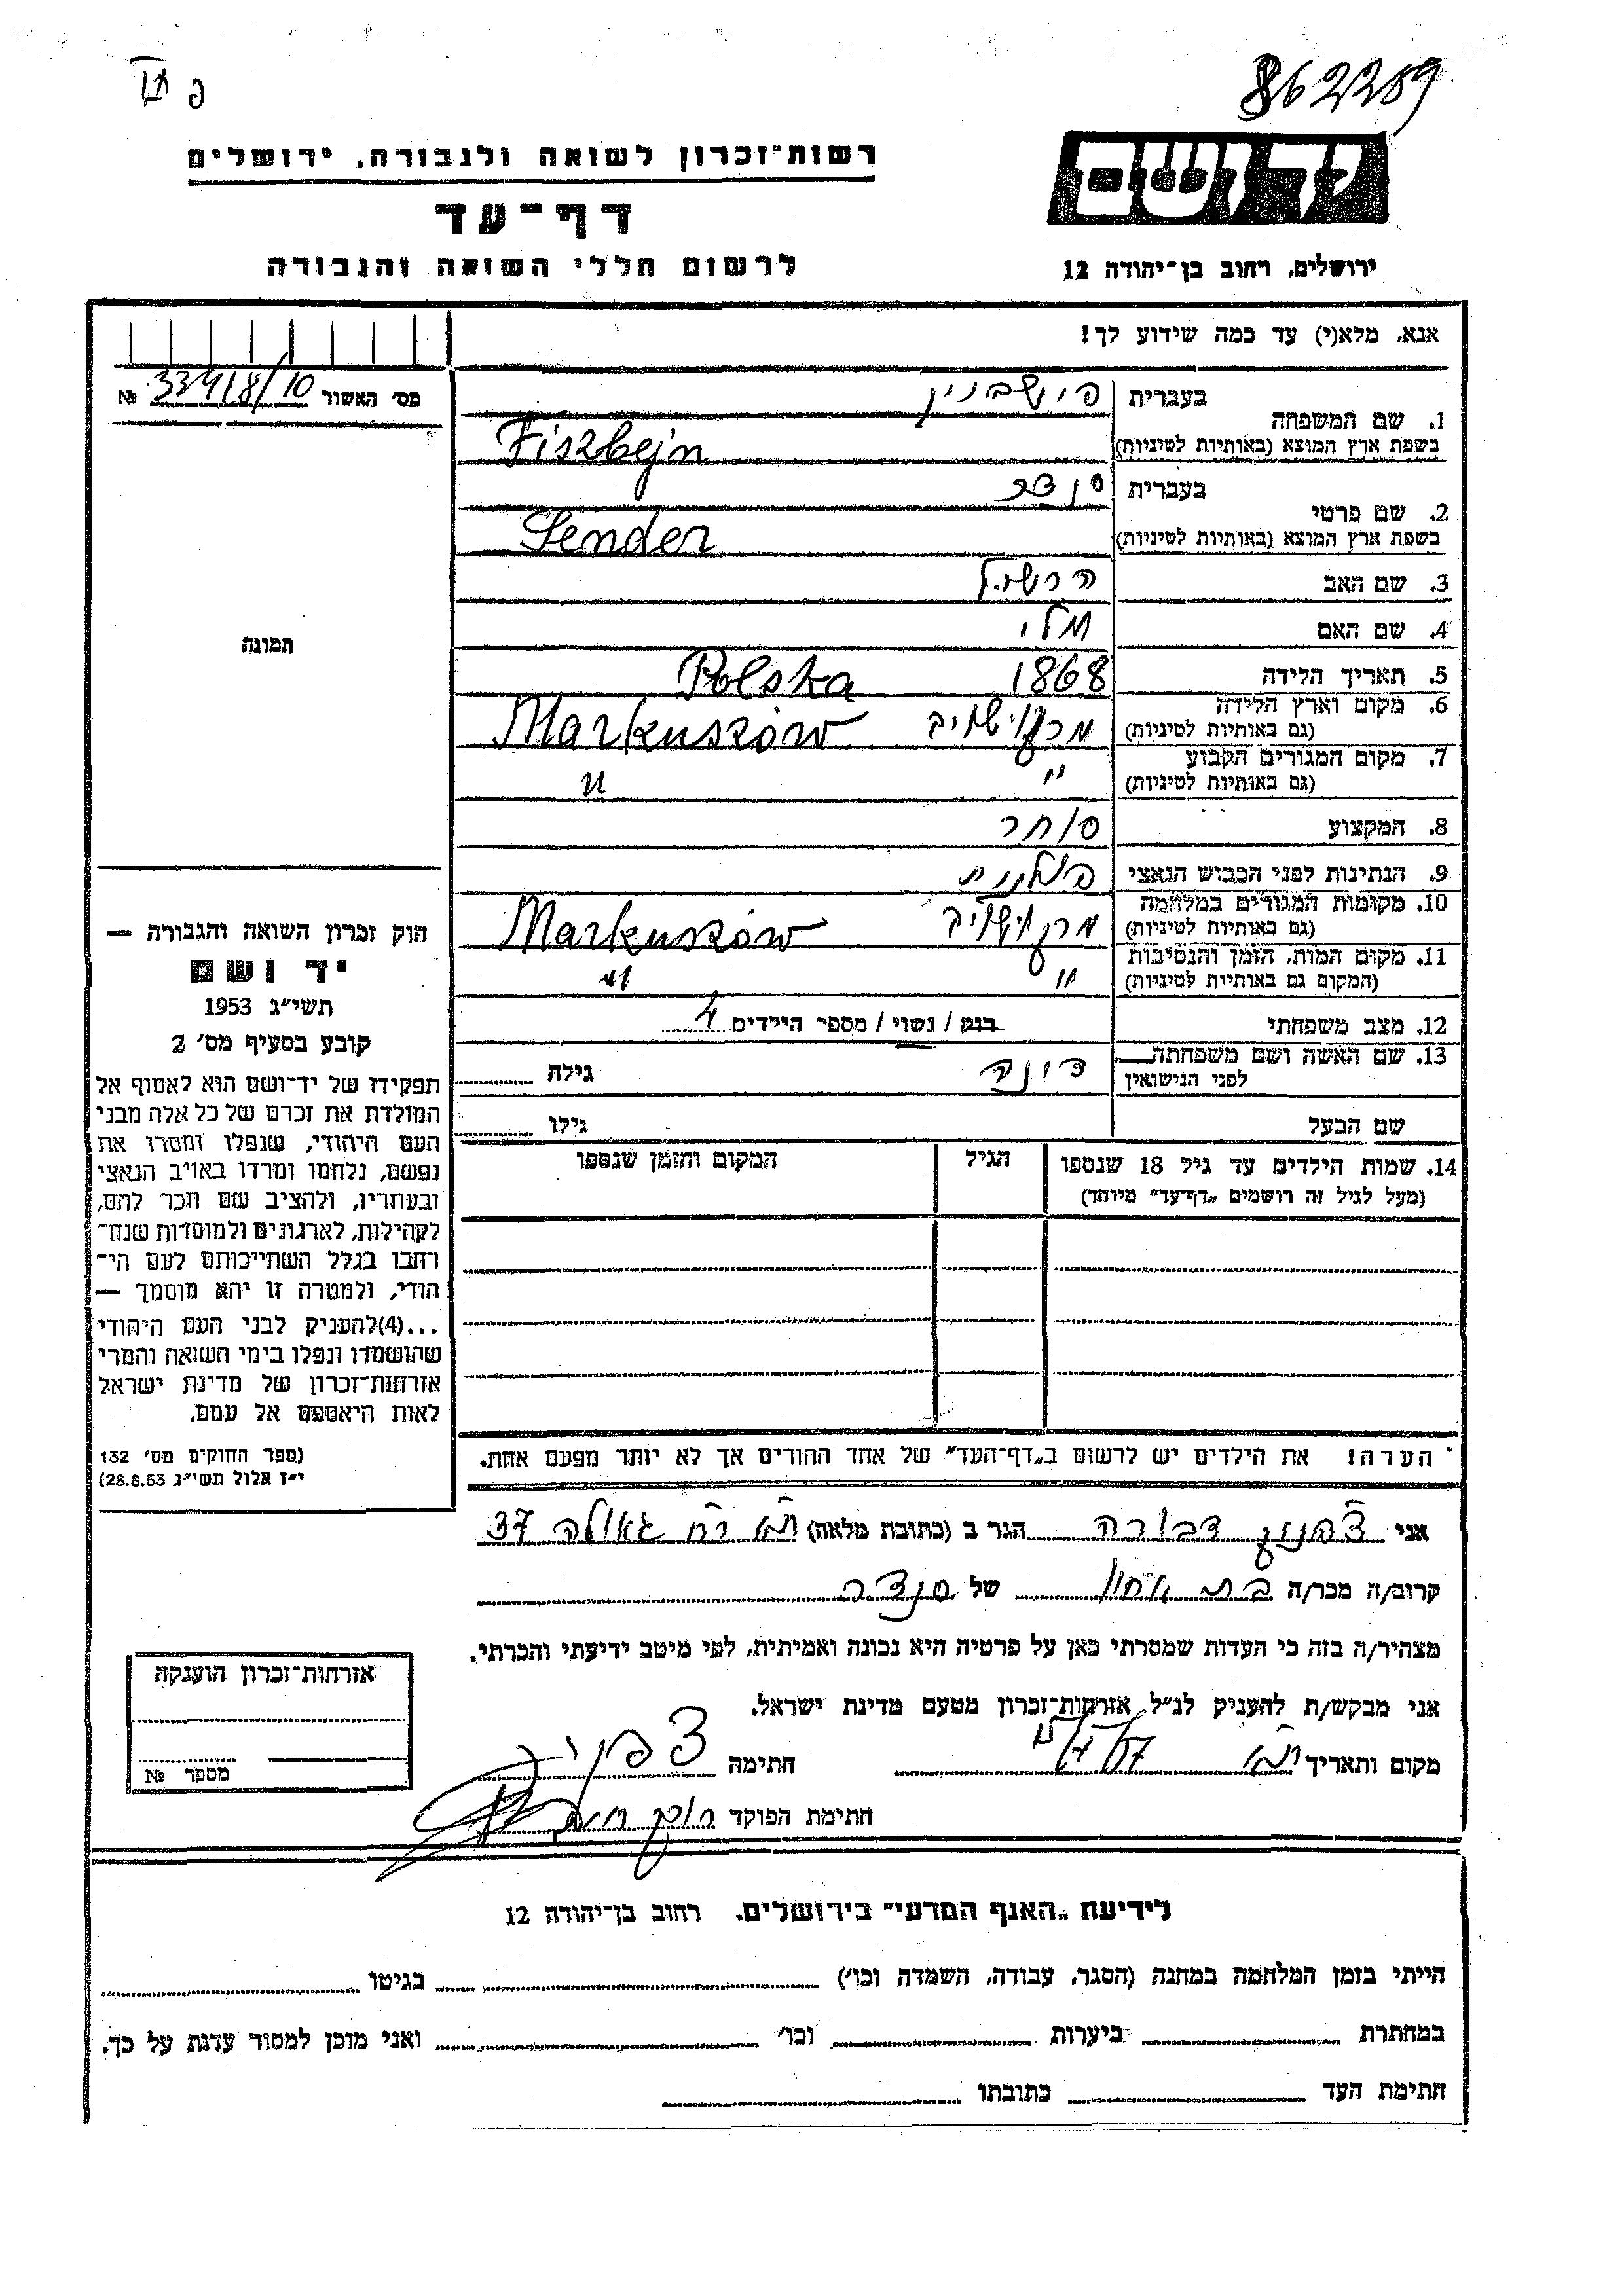 862209
פ
רשות־זכרון לשואה ולגבורה, ירושלים
יד ושם
דף־עד
לרשום חללי השואה והגבורה
ירושלים, רחוב בן־יהודה 12
אנא, מלא(י) עד כמה שידוע לך!
מס׳ האשור № 33418/10
1. שם המשפחה
בעברית פישביין
בשפת ארץ המוצא (באותיות לטיניות) Fiszbejn
2. שם פרטי
בעברית סנדר
בשפת ארץ המוצא (באותיות לטיניות) Sender
3. שם האב הרשל
4. שם האם מלי
5. תאריך הלידה 1868 Polska
6. מקום וארץ הלידה
(גם באותיות לטיניות) מרקושוב Markuszów
7. מקום המגורים הקבוע
(גם באותיות לטיניות) " "
8. המקצוע סוחר
9. הנתינות לפני הכבוש הנאצי פולנית
10. מקומות המגורים במלחמה
(גם באותיות לטיניות) מרקושוב Markuszów
11. מקום המות, הזמן והנסיבות
(המקום גם באותיות לטיניות) " "
12. מצב משפחתי רווק / נשוי / מספר הילדים 4
13. שם האשה ושם משפחתה
לפני הנישואין דינה גילה
שם הבעל גילו
14. שמות הילדים עד גיל 18 שנספו הגיל המקום והזמן שנספו
(מעל לגיל זה רושמים „דף־עד" מיוחד)
הערה! את הילדים יש לרשום ב„דף־העד" של אחד ההורים אך לא יותר מפעם אחת.
תמונה
חוק זכרון השואה והגבורה —
יד ושם
תשי״ג 1953
קובע בסעיף מס׳ 2
תפקידו של יד־ושם הוא לאסוף אל
המולדת את זכרם של כל אלה מבני
העם היהודי, שנפלו ומסרו את
נפשם, נלחמו ומרדו באויב הנאצי
ובעוזריו, ולהציב שם וזכר להם,
לקהילות, לארגונים ולמוסדות שנח־
רבו בגלל השתייכותם לעם הי־
הודי, ולמטרה זו יהא מוסמך —
...(4)להעניק לבני העם היהודי
שהושמדו ונפלו בימי השואה והמרי
אזרחות־זכרון של מדינת ישראל
לאות היאספם אל עמם.
(ספר החוקים מס׳ 132
י״ז אלול תשי״ג 28.8.53)
אני דבורה הגר ב (כתובת מלאה) ת״א רח׳ גאולה 37
קרוב/ה מכר/ה בת אחיו של סנדר
מצהיר/ה בזה כי העדות שמסרתי כאן על פרטיה היא נכונה ואמיתית, לפי מיטב ידיעתי והכרתי.
אני מבקש/ת להעניק לנ״ל אזרחות־זכרון מטעם מדינת ישראל.
מקום ותאריך ת״א חתימה
חתימת הפוקד
אזרחות־זכרון הוענקה
מספר №
לידיעת „האגף המדעי" בירושלים, רחוב בן־יהודה 12
הייתי בזמן המלחמה במחנה (הסגר, עבודה, השמדה וכו׳) בגיטו
במחתרת ביערות וכו׳ ואני מוכן למסור עדות על כך.
חתימת העד כתובתו